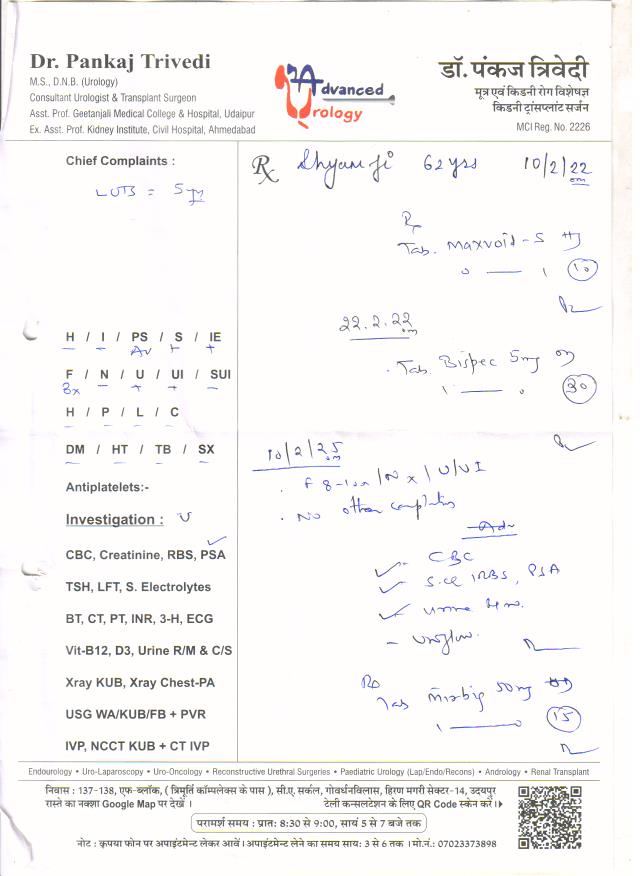 Dr. Pankaj Trivedi
M.S., D.N.B. (Urology)
Consultant Urologist & Transplant Surgeon
Asst. Prof. Geetanjali Medical College & Hospital, Udaipur
Ex. Asst. Prof. Kidney Institute, Civil Hospital, Ahmedabad
Advanced
Urology
डॉ. पंकज त्रिवेदी
मूत्र एवं किडनी रोग विशेषज्ञ
किडनी ट्रांसप्लांट सर्जन
MCI Reg. No. 2226
Chief Complaints :
LUTS = 5
Rx Shyam ji 62 yrs 10/2/22
Rx
Tab. Maxvoid-S
0 — 1 10
H / I / PS / S / IE
F / N / U / UI / SUI
H / P / L / C
DM / HT / TB / SX
Antiplatelets:-
Investigation :
CBC, Creatinine, RBS, PSA
TSH, LFT, S. Electrolytes
BT, CT, PT, INR, 3-H, ECG
Vit-B12, D3, Urine R/M & C/S
Xray KUB, Xray Chest-PA
USG WA/KUB/FB + PVR
IVP, NCCT KUB + CT IVP
22.2.22
Tab. Bispec 5mg
1 — 0 30
10/2/25
F 8-10x / Nx / U/UI
No other complaints
Adv
CBC
S.Cr / RBS, PSA
Urine
Uroflow.
Rx
Tab Mirbig 50mg
1 — 0 15
Endourology • Uro-Laparoscopy • Uro-Oncology • Reconstructive Urethral Surgeries • Paediatric Urology (Lap/Endo/Recons) • Andrology • Renal Transplant
निवास : 137-138, एफ-ब्लॉक, ( त्रिमूर्ति कॉम्पलेक्स के पास ), सी.ए. सर्कल, गोवर्धनविलास, हिरण मगरी सेक्टर-14, उदयपुर
रास्ते का नक्शा Google Map पर देखें । टेली कन्सलटेशन के लिए QR Code स्केन करें ।
परामर्श समय : प्रात: 8:30 से 9:00, सायं 5 से 7 बजे तक
नोट : कृपया फोन पर अपाइंटमेण्ट लेकर आवें । अपाइंटमेण्ट लेने का समय सायं: 3 से 6 तक । मो.नं.: 07023373898